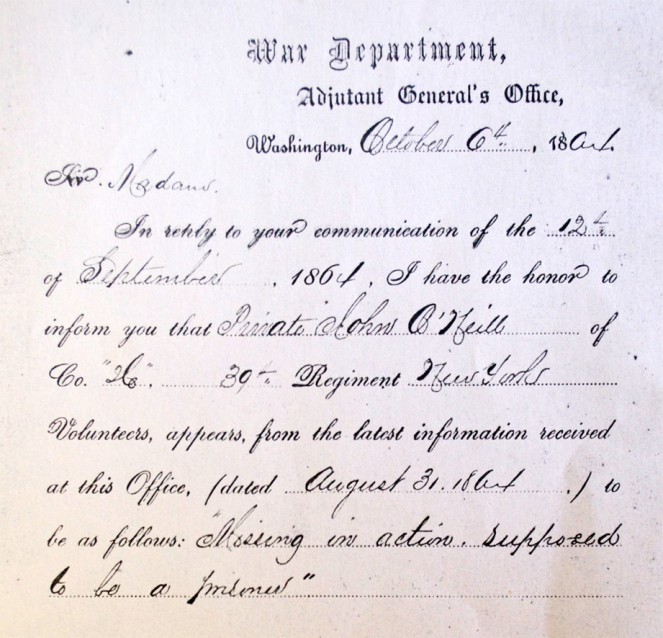 War Department,
Adjutant General's Office,
Washington, October 6th, 1864.
Sir. Madam.
In reply to your communication of the 12th
of September, 1864, I have the honor to
inform you that Private John O'Neill of
Co. "H", 39th Regiment New York
Volunteers, appears, from the latest information received
at this Office, (dated August 31. 1864.) to
be as follows: "Missing in action. supposed
to be a prisoner"